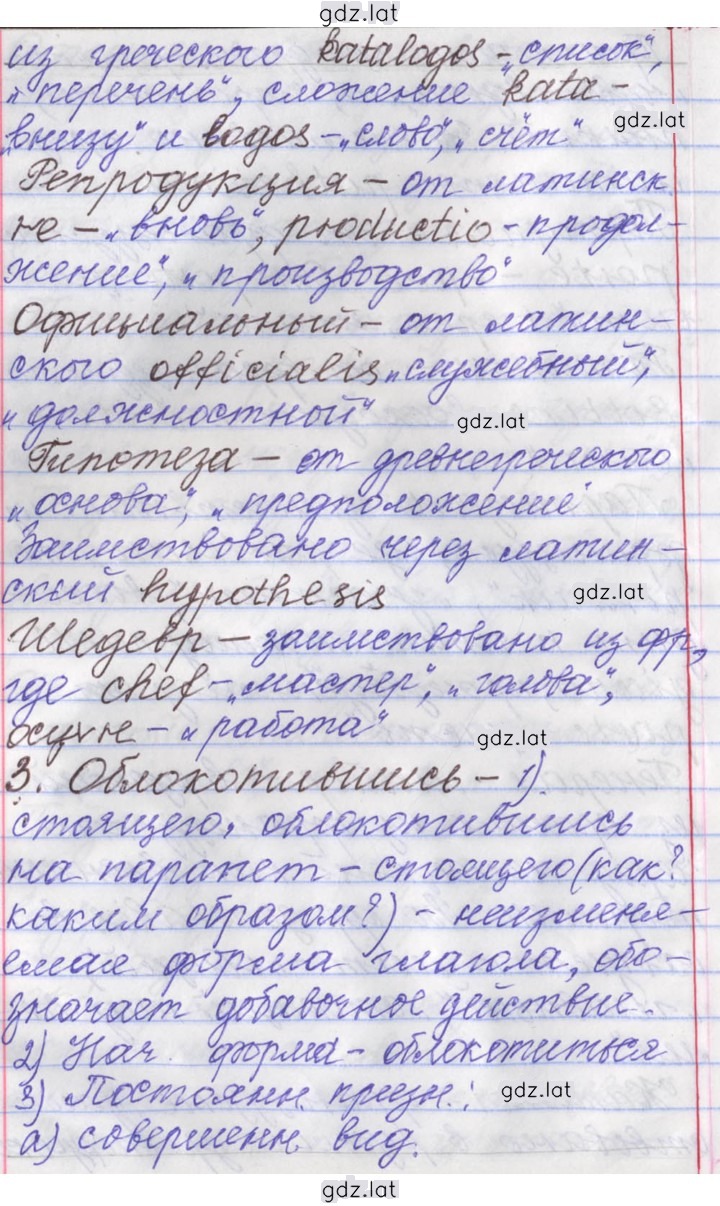 gdz.lat
из греческого katalogos - „список“,
„перечень“, сложение kata -
gdz.lat
„внизу“ и logos - „слово“, „счёт“
Репродукция - от латинск
re - „вновь“, productio - продол-
жение“, „производство“
Официальный - от латин-
ского officialis „служебный“,
„должностный“
gdz.lat
Гипотеза - от древнегреческого
„основа“, „предположение“
Заимствовано через латин-
ский hypothesis
gdz.lat
Шедевр - заимствовано из фр,
где chef - „мастер“, „голова“,
- „работа“
gdz.lat
3. Облокотившись - 1)
стоящего, облокотившись
на парапет - стоящего (как?
каким образом?) - неизменя-
емая форма глагола, обо-
значает добавочное действие.
2) Нач. форма - облокотиться
3) Постоянн. призн.:
gdz.lat
а) совершенн вид.
gdz.lat